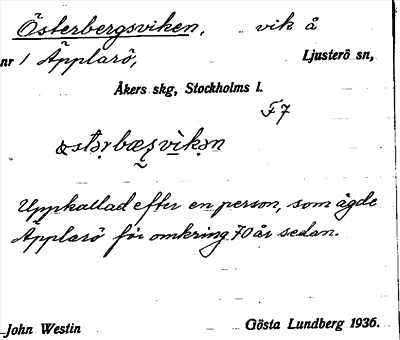 Österbergsviken, vik å
nr 1 Äpplarö, Ljusterö sn,
Åkers skg, Stockholms l.
F7
Uppkallad efter en person, som ägde
Äpplarö för omkring 70 år sedan.
John Westin Gösta Lundberg 1936.